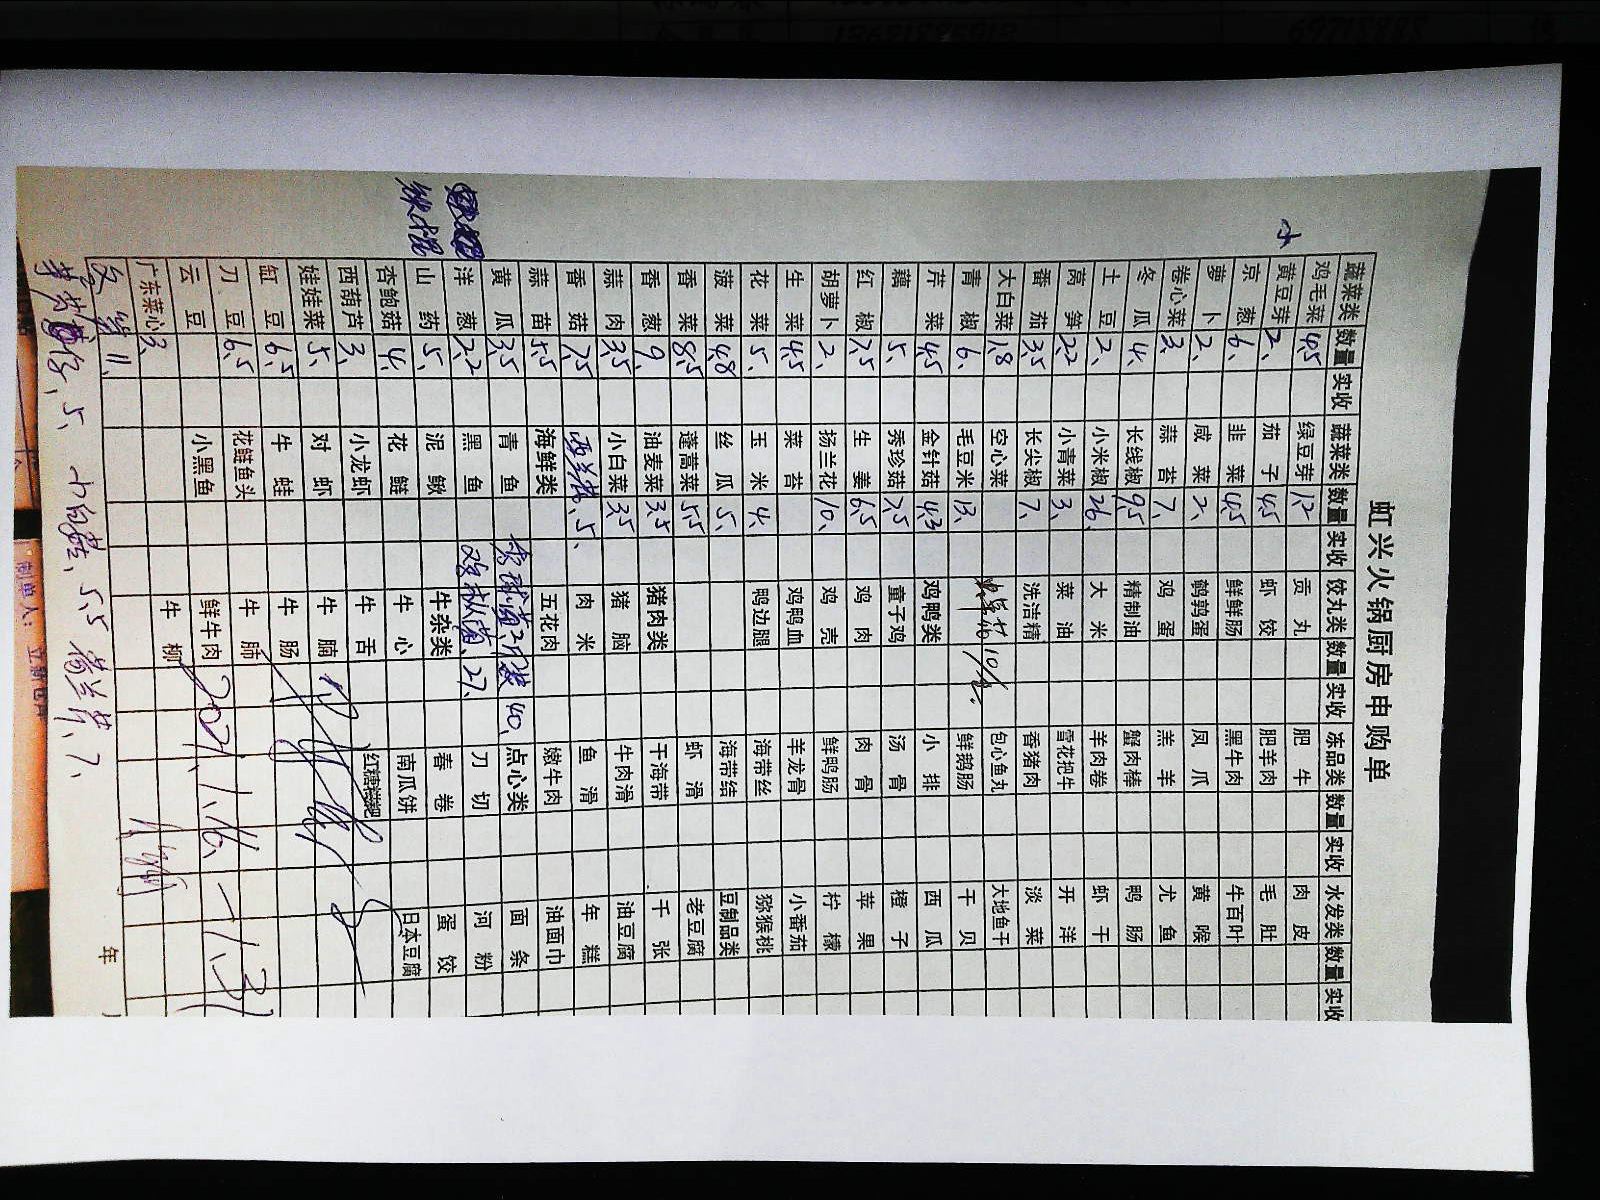 虹兴火锅厨房申购单
蔬菜类 数量 实收 蔬菜类 数量 实收 饺丸类 数量 实收 冻品类 数量 实收 水发类 数量 实收
鸡毛菜 4.5 绿豆芽 1.2 贡丸 肥牛 肉皮
黄豆芽 2、 茄子 4.5 虾饺 肥羊肉 毛肚
京葱 6、 韭菜 4.5 鲜鲜肠 黑牛肉 牛百叶
萝卜 2、 咸菜 2、 鹌鹑蛋 凤爪 黄喉
卷心菜 3、 蒜苔 7、 鸡蛋 羔羊 尤鱼
冬瓜 4、 长线椒 9.5 精制油 蟹肉棒 鸭肠
土豆 2、 小米椒 26、 大米 羊肉卷 虾干
莴笋 2.2 小青菜 3、 菜油 雪花把牛 开洋
番茄 3.5 长尖椒 7、 洗洁精 香猪肉 淡菜
大白菜 1.8 空心菜 包心鱼丸 大地鱼干
青椒 6、 毛豆米 13、 鲜鹅肠 干贝
芹菜 4.5 金针菇 4.3 鸡鸭类 小排 西瓜
藕 5、 秀珍菇 7.5 童子鸡 汤骨 橙子
红椒 7.5 生姜 6.5 鸡肉 肉骨 苹果
胡萝卜 2、 扬兰花 10、 鸡壳 鲜鸭肠 柠檬
生菜 4.5 菜苔 鸡鸭血 羊龙骨 小番茄
花菜 5、 玉米 4、 鸭边腿 海带丝 猕猴桃
菠菜 4.8 丝瓜 5、 海带结 豆制品类
香菜 8.5 蓬蒿菜 5.5 虾滑 老豆腐
香葱 9、 油麦菜 3.5 猪肉类 干海带 千张
蒜肉 3.5 小白菜 3.5 猪脑 牛肉滑 油豆腐
香菇 7.5 西兰花、5、 肉米 鱼滑 年糕
蒜苗 5.5 海鲜类 五花肉 嫩牛肉 油面巾
黄瓜 3.5 青鱼 40、 点心类 面条
洋葱 2.2 黑鱼 鸡枞菌、27、 刀切 河粉
山药 5、 泥鳅 牛杂类 春卷 蛋饺
杏鲍菇 4、 花鲢 牛心 南瓜饼 日本豆腐
西葫芦 3、 小龙虾 牛舌 红糖糍粑
娃娃菜 5、 对虾 牛腩
缸豆 6.5 牛蛙 牛肠
刀豆 6.5 花鲢鱼头 牛肺
云豆 小黑鱼 鲜牛肉 2021.1.16、一1.31
广东菜心 3、 牛柳
11、
5、 5.5 7、
年
制单人: